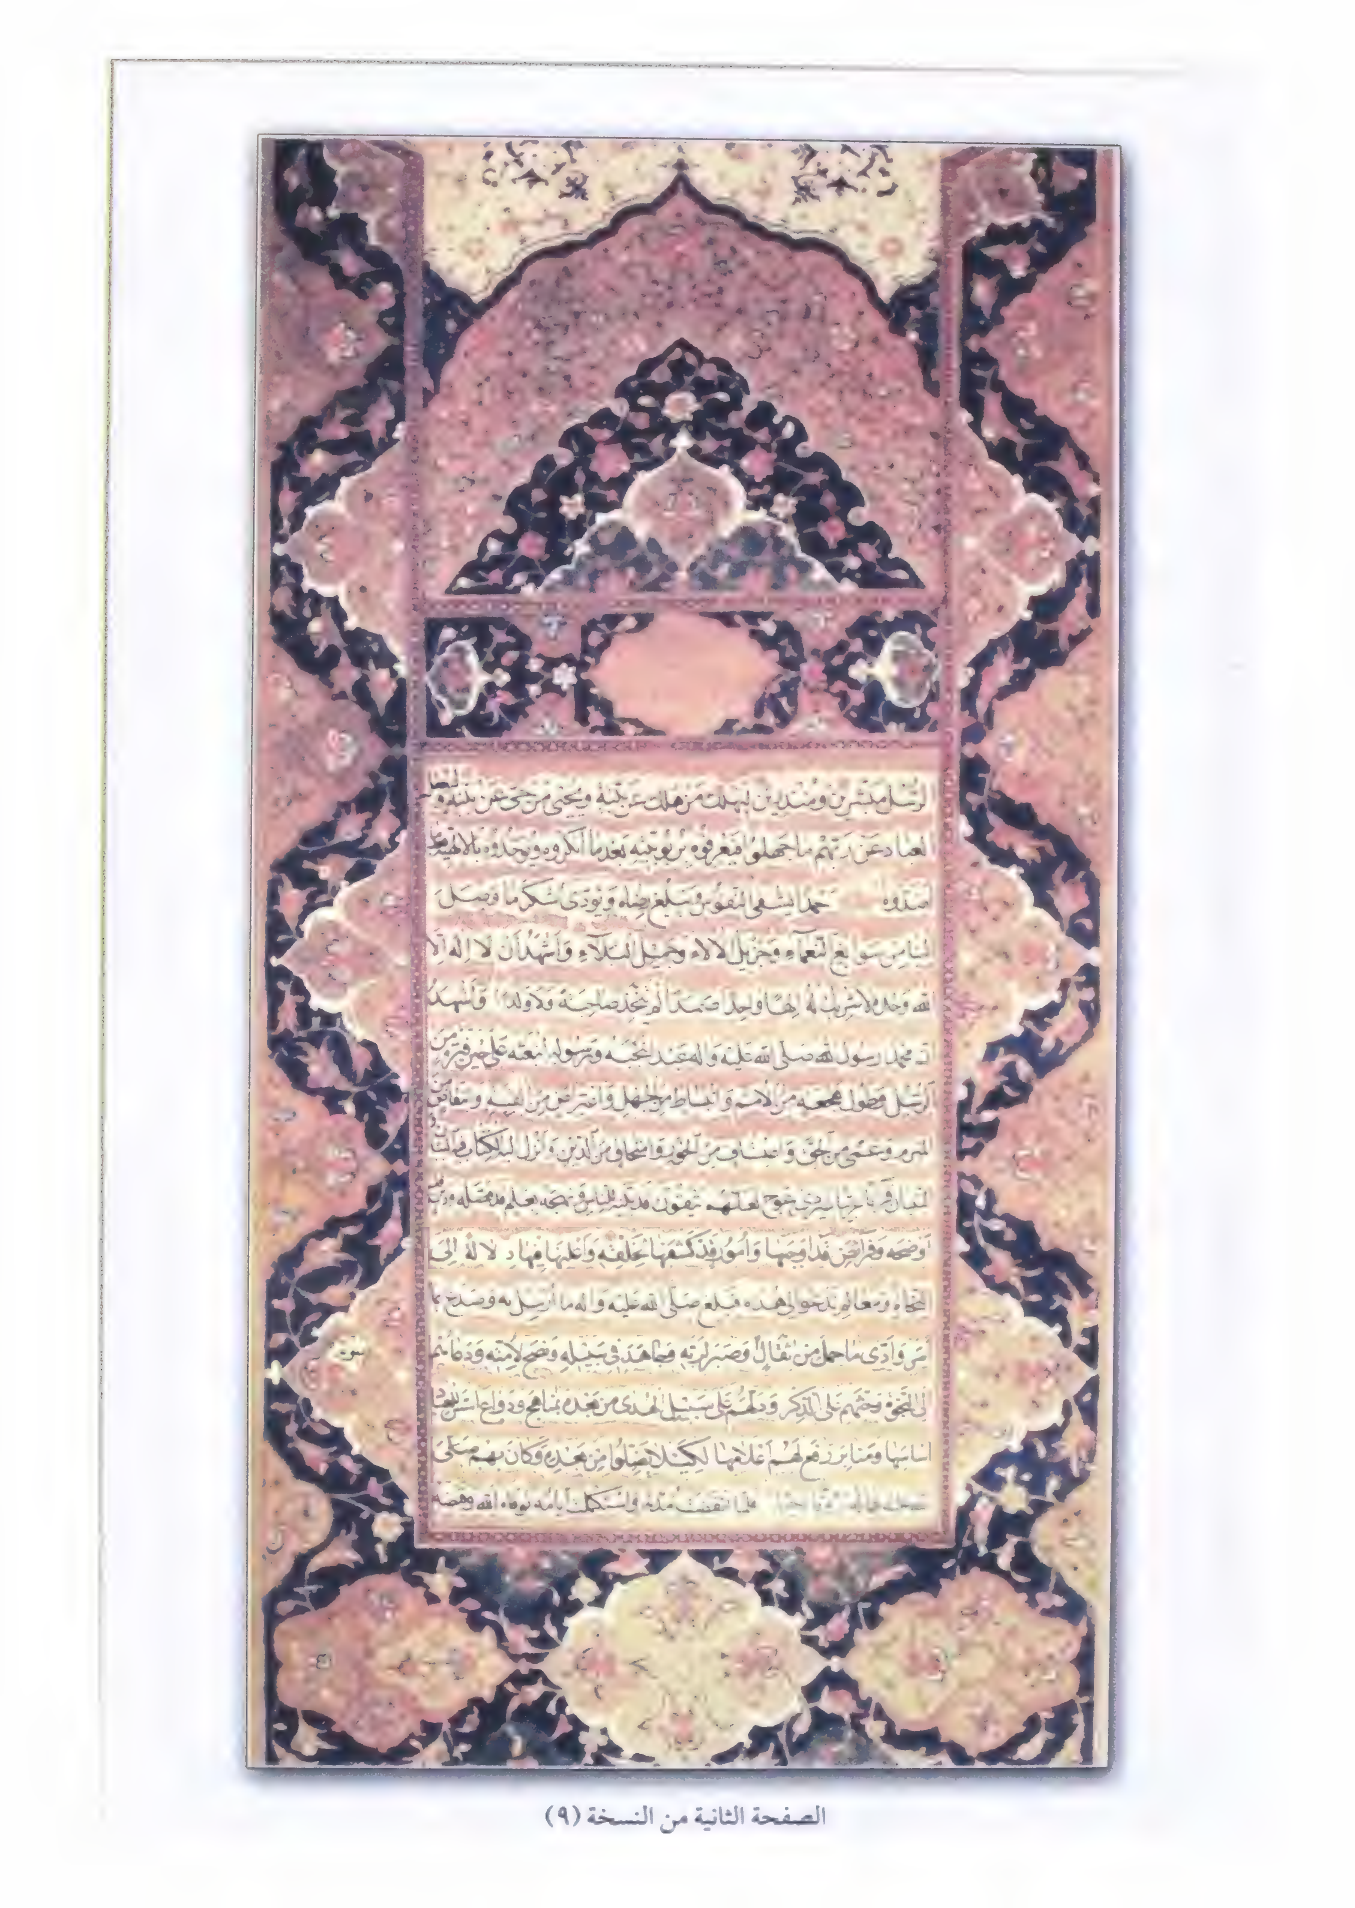 الرسل مبشرين ومنذرين ليهلك من هلك عن بينة ويحيى من حي عن بينة وليعقل
العباد عن ربهم ما جهلوا فيعرفوه بربوبيته بعد ما انكروه ويوحدوه بالالهية بعد ما
اضدوه حمدا يشفي النفوس ويبلغ رضاه ويؤدي شكر ما وصل
الينا من سوابغ النعماء وجزيل الآلاء وجميل البلاء واشهد ان لا اله الا
الله وحده لا شريك له الها واحدا صمدا لم يتخذ صاحبة ولا ولدا واشهد
ان محمدا رسول الله صلى الله عليه واله عبد انتجبه ورسول ابتعثه على حين فترة من
الرسل وطول هجعة من الامم وانبساط من الجهل واعتراض من الفتنة وانتقاض من
المبرم وعمى من الحق واعتساف من الجور وامتحاق من الدين وانزل اليه الكتاب فيه البيان و
التبيان قرآنا عربيا غير ذي عوج لعلهم يتقون قد بينه للناس ونهجه بعلم قد فصله ودين قد
اوضحه وفرائض قد اوجبها وامور قد كشفها لخلقه واعلنها فيها دلالة الى
النجاة ومعالم تدعو الى هداه فبلغ صلى الله عليه واله ما ارسل به وصدع بما
امر وادى ما حمل من اثقال وصبر لربه وجاهد في سبيله ونصح لامته ودعاهم
الى النجاة وحثهم على الذكر ودلهم على سبيل الهدى من بعده بمناهج ودواع اسس للعباد
اساسها ومنابر رفع لهم اعلامها لكيلا يضلوا من بعده وكان بهم
فلما انقضت مدته واستكملت ايامه توفاه الله وقبضه
الصفحة الثانية من النسخة (٩)